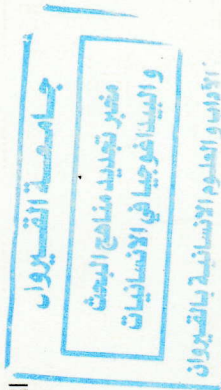 جامعة القيروان
مخبر تجديد مناهج البحث
و البيداغوجيا في الانسانيات
الآداب و العلوم الانسانية بالقيروان